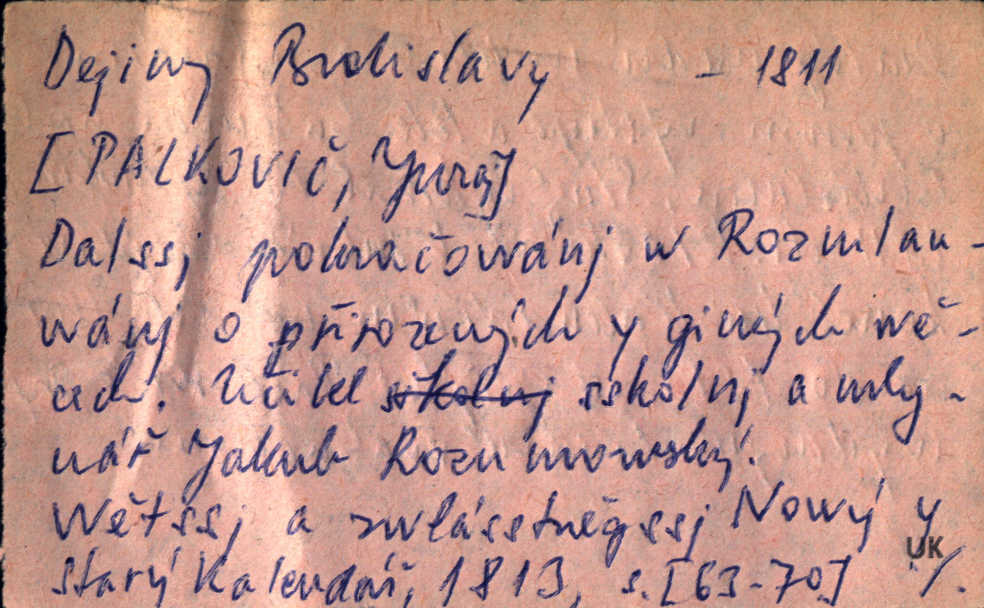 Dejiny Bratislavy - 1811
[PALKOVIČ, Juraj]
Dalssj pokračowánj w Rozmlau-
wánj o přirozených y giných wě-
cech. Učitel školnj sskolnj a mly-
nář Jakub Rozumowský.
Wětssj a zwlásstněgssj Nowý y
starý Kalendář, 1813, s. [63-70] ./.
UK